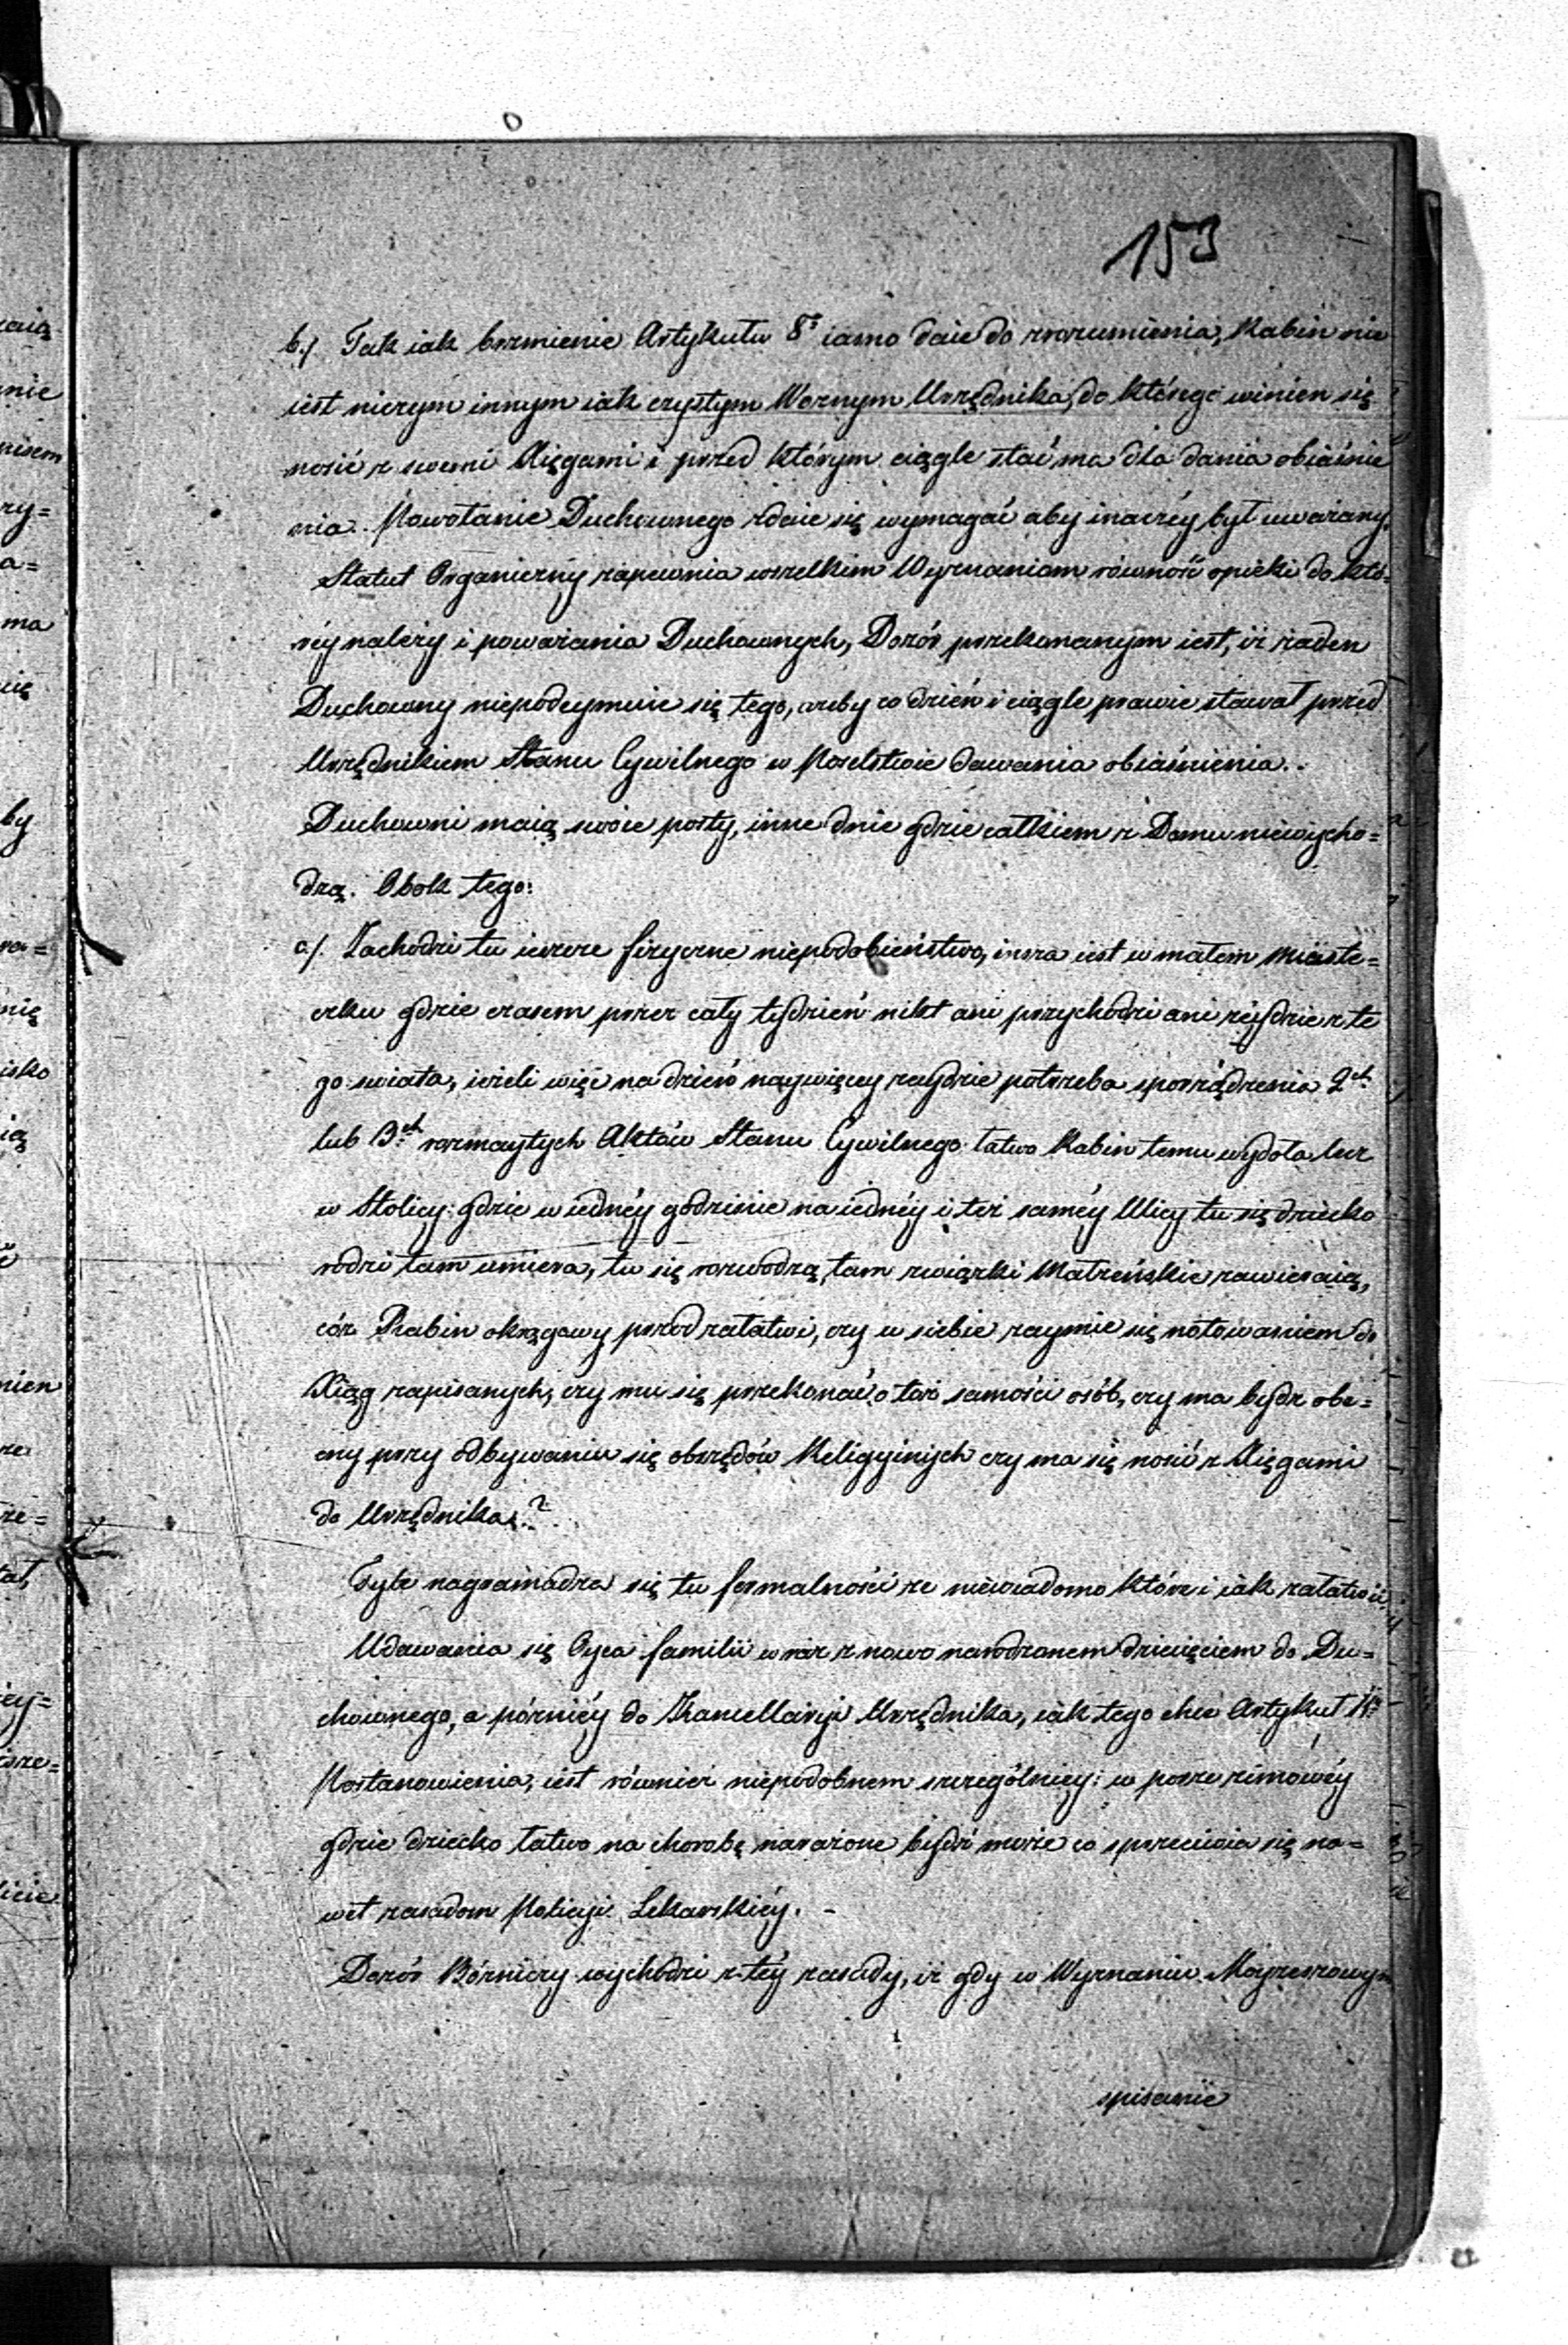 153
b./ Tak iak brzmienie Artykułu 8º iasno daie do zrozumienia, Rabin nie
iest niczym innym iak czystym Woźnym Urzędnika, do którego winien się
nosić z swemi Xięgami i przed którym ciągle stać ma dla dania obiaśnie
nia. Powołanie Duchownego zdaie się wymagać aby inaczéy był uważany.
Statut Organiczny zapewnia wszelkim Wyznaniom równość opieki do któ-
réy należy i poważania Duchownych, Dozór przekonanym iest, iż żaden
Duchowny niepodeymuie się tego, ażeby co dzień i ciągle prawie stawał przed
Urzędnikiem Stanu Cywilnego w Poselstwie dawania obiaśnienia.
Duchowni maią swoie posty, inne dnie gdzie całkiem z Domu niewycho=
dzą. Obok tego:
c/. Zachodzi tu ieszcze fizyczne niepodobieństwo, insza iest w małem miaste=
czku gdzie czasem przez cały tydzień nikt ani przychodzi ani zéydzie z te
go świata, ieżeli więc na dzień naywięcy zaydzie potrzeba sporządzenia 2ch
lub 3ch rozmaytych Aktów Stanu Cywilnego łatwo Rabin temu wydoła lecz
w Stolicy gdzie w iednéy godzinie na iednéy i téż saméy Ulicy tu się dziecko
rodzi tam umiera, tu się rozwodzą, tam związki Małżeńskie zawieraią,
cóż Rabin okręgowy przód załatwi, czy u siebie zaymie się notowaniem do
Xiąg zapisanych, czy mu się przekonać o toż samości osób, czy ma bydź obe=
cny przy odbywaniu się obrzędów Religyinych czy ma się nosić z Xięgami
do Urzędnika?
Tyle nagromadza się tu formalności że niewiadomo które i iak załatwić.
Udawania się Oyca familii wraz z nowo narodzonem dziecięciem do Du=
chownego, a późniéy do Kancellaryi Urzędnika, iak tego chce Artykuł
Postanowienia, iest również niepodobnem szczególniey: w porze zimowéy
gdzie dziecko łatwo na chorobę narażone bydź może co sprzeciwia się na=
wet zasadom Policyi Lekarskiéy.
Dozór Bóżniczy wychodzi z téy zasady, iż gdy w Wyznaniu Moyżeszowym
spisanie